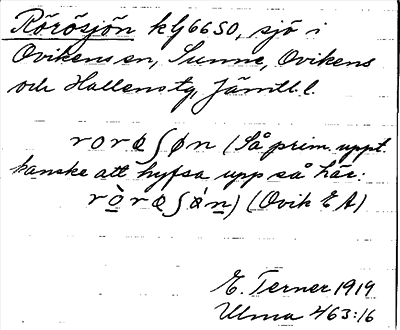 Rörösjön kbl 6650, sjö i
Ovikens sn, Sunne, Ovikens
och Hallens tg, Jämtl. l.
rorøʃøn (Så prim. uppt.
kanske att hyfsa upp så här:
(Ovik E A)
E. Terner 1919
Ulma 463:16